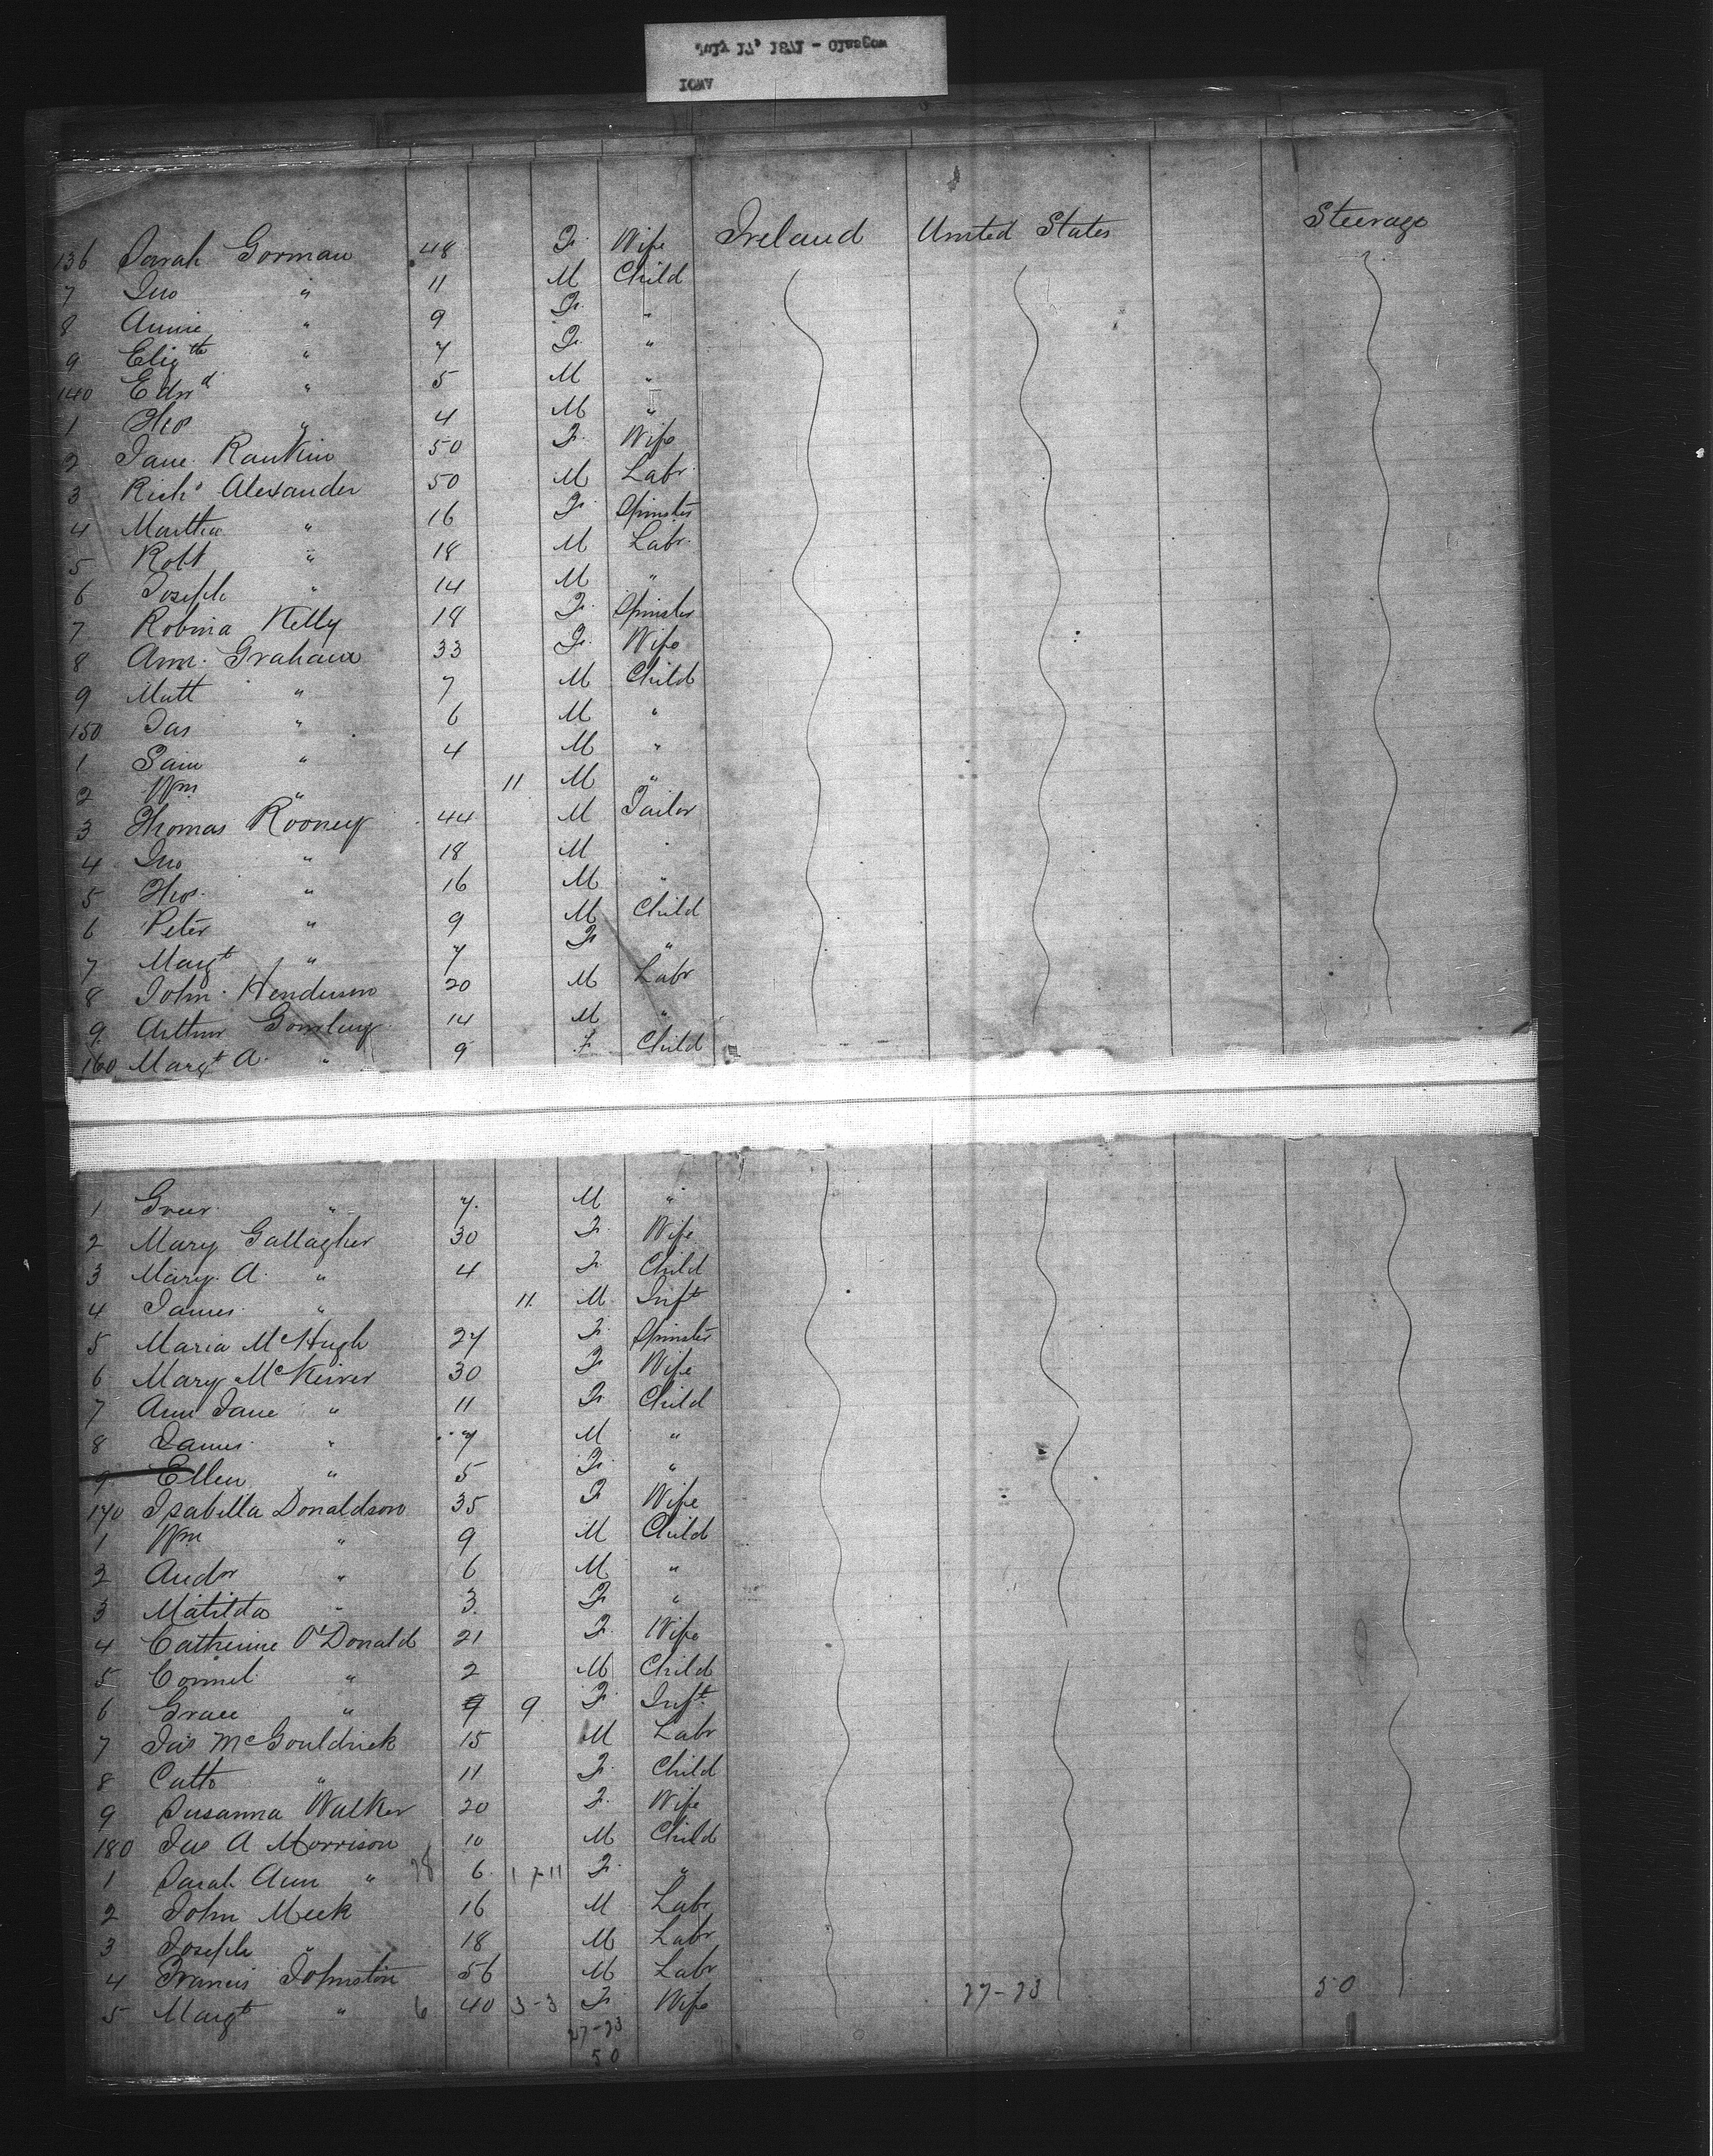 136 Sarah Gorman 48 F. Wife Ireland United States Steerage
7 Jno " 11 M Child
8 Annie " 9 F. "
9 Elizth " 7 F "
140 Edwd " 5 M "
1 Thos " 4 M "
2 Jane Rankin 50 F. Wife
3 Richd Alexander 50 M Labr.
4 Martha " 16 F Spinster
5 Robt " 18 M Labr.
6 Joseph " 14 M "
7 Robina Kelly 18 F. Spinster
8 Ann Graham 33 F. Wife
9 Matt " 7 M Child
150 Jas " 6 M "
1 Sam " 4 M "
2 Wm " 11 M "
3 Thomas Rooney 44 M Tailor
4 Jno " 18 M "
5 Thos. " 16 M "
6 Peter " 9 M Child
7 Margt " 7 F "
8 John Henderson 20 M Labr
9 Arthur Gourley 14 M "
160 Margt A. " 9 F Child
1 Greer " 7. M "
2 Mary Gallagher 30 F. Wife
3 Mary A. " 4 F. Child
4 James " 11. M Inft
5 Maria McHugh 27 F. Spinster
6 Mary McKeiver 30 F Wife
7 Ann Jane " 11 F. Child
8 James " 7 M "
9 Ellen " 5 F. "
170 Isabella Donaldson 35 F Wife
1 Wm " 9 M Child
2 Andw " 6 M "
3 Matilda " 3. F "
4 Catherine O'Donald 21 F. Wife
5 Connel " 2 M Child
6 Grace " 9 F. Inft.
7 Jas McGouldrick 15 M Labr
8 Catte " 11 F. Child
9 Susanna Walker 20 F. Wife
180 Jas A Morrison 10 M Child
1 Sarah Ann " 6 17-11 F. "
2 John Meek 16 M Labr
3 Joseph " 18 M Labr
4 Francis Johnston 56 M Labr
5 Margt " 6 40 3-3 F. Wife 27-23 50
27-23
50